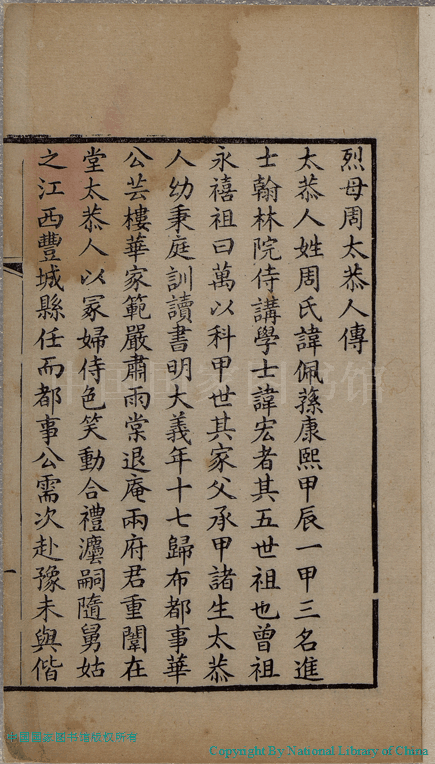 烈母周太恭人傳
太恭人姓周氏諱佩蓀康熙甲辰一甲三名進
士翰林院侍講學士諱宏者其五世祖也曾祖
永禧祖曰萬以科甲世其家父承甲諸生太恭
人幼秉庭訓讀書明大義年十七歸布都事華
公芸樓華家範嚴肅雨棠退庵兩府君重闈在
堂太恭人以冢婦侍色笑動合禮灋嗣隨舅姑
之江西豐城縣任而都事公需次赴豫未與偕
中国国家图书馆
中国国家图书馆版权所有
Copyright By National Library of China